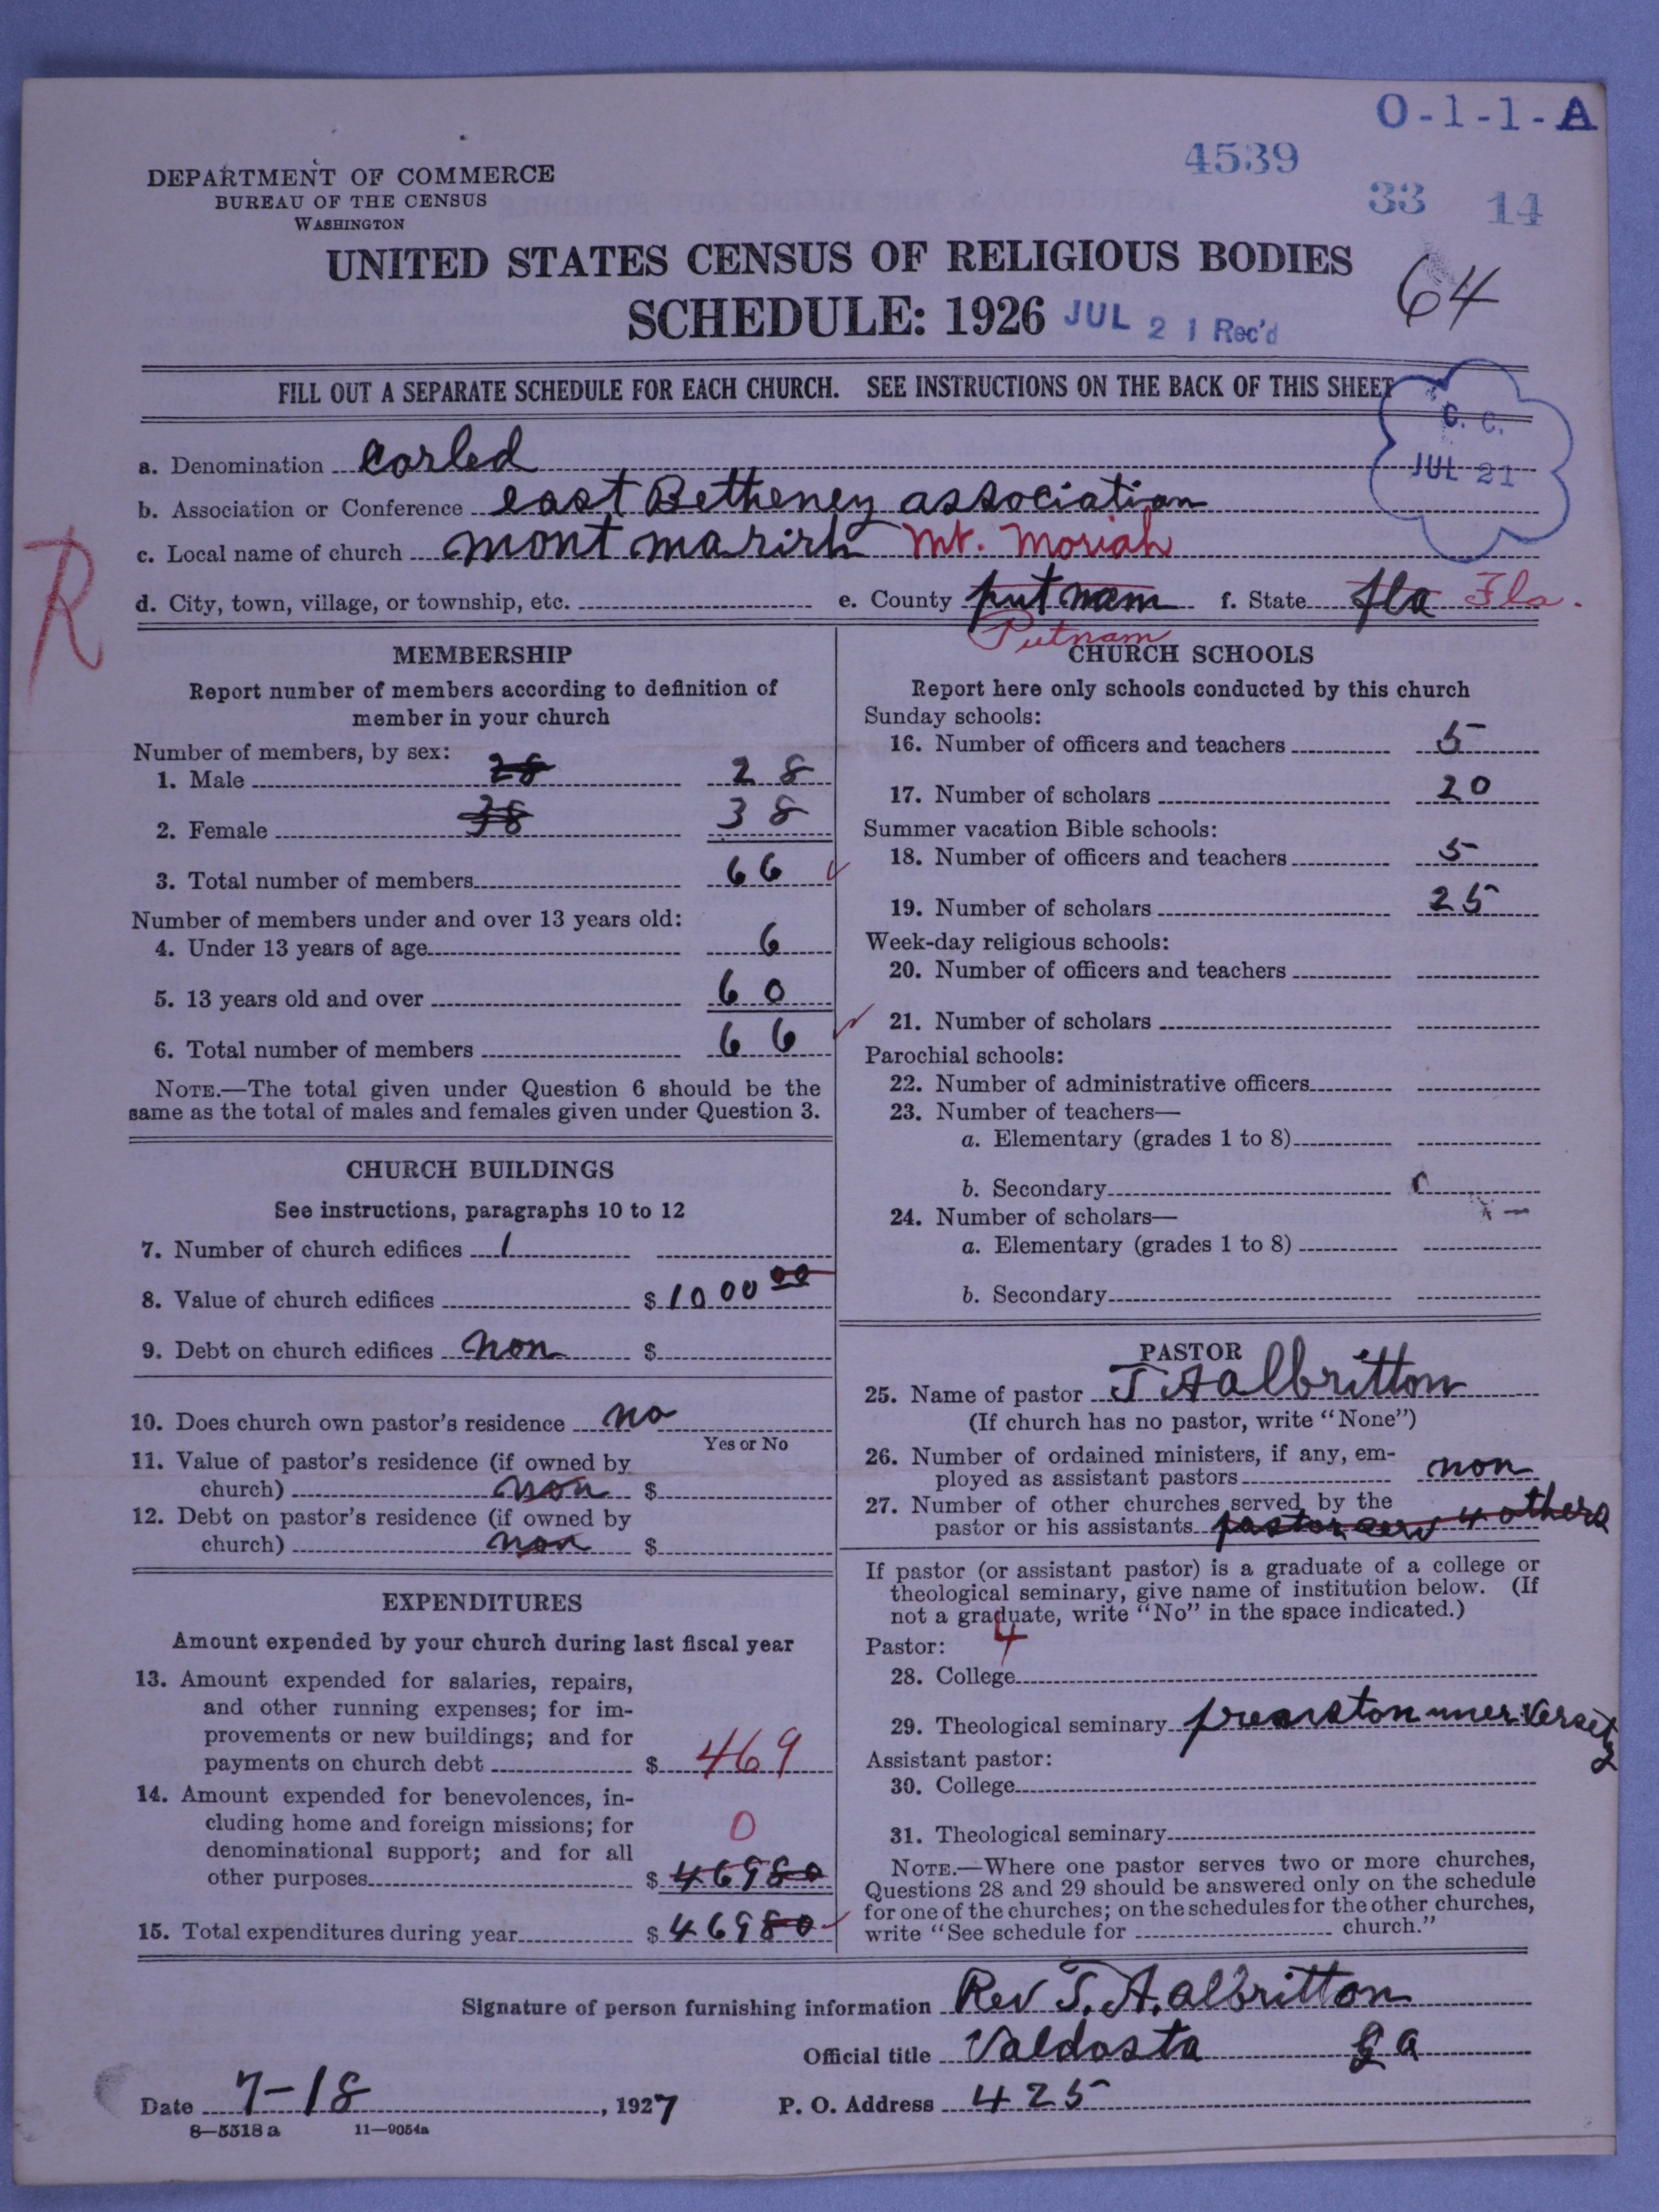 O-1-1-A
4539
33 14
DEPARTMENT OF COMMERCE
BUREAU OF THE CENSUS
WASHINGTON
UNITED STATES CENSUS OF RELIGIOUS BODIES
SCHEDULE: 1926 JUL 21 Rec'd
64
FILL OUT A SEPARATE SCHEDULE FOR EACH CHURCH. SEE INSTRUCTIONS ON THE BACK OF THIS SHEET
C. C.
JUL 21
a. Denomination corled
b. Association or Conference east Betheney association
c. Local name of church mont marirh Mt. Moriah
d. City, town, village, or township, etc. e. County putnam f. State fla Fla.
Putnam
R
MEMBERSHIP
Report number of members according to definition of
member in your church
Number of members, by sex:
1. Male 28 28
2. Female 38 38
3. Total number of members 66
Number of members under and over 13 years old:
4. Under 13 years of age 6
5. 13 years old and over 60
6. Total number of members 66
NOTE.—The total given under Question 6 should be the
same as the total of males and females given under Question 3.
CHURCH BUILDINGS
See instructions, paragraphs 10 to 12
7. Number of church edifices 1
8. Value of church edifices $ 1000 00
9. Debt on church edifices non $
10. Does church own pastor's residence no
Yes or No
11. Value of pastor's residence (if owned by
church) non $
12. Debt on pastor's residence (if owned by
church) non $
EXPENDITURES
Amount expended by your church during last fiscal year
13. Amount expended for salaries, repairs,
and other running expenses; for im-
provements or new buildings; and for
payments on church debt $ 469
14. Amount expended for benevolences, in-
cluding home and foreign missions; for
denominational support; and for all
0
other purposes $ 46980
15. Total expenditures during year $ 46980
CHURCH SCHOOLS
Report here only schools conducted by this church
Sunday schools:
16. Number of officers and teachers 5
17. Number of scholars 20
Summer vacation Bible schools:
18. Number of officers and teachers 5
19. Number of scholars 25
Week-day religious schools:
20. Number of officers and teachers
21. Number of scholars
Parochial schools:
22. Number of administrative officers
23. Number of teachers—
a. Elementary (grades 1 to 8)
b. Secondary
24. Number of scholars—
a. Elementary (grades 1 to 8)
b. Secondary
PASTOR
25. Name of pastor T A albritton
(If church has no pastor, write "None")
26. Number of ordained ministers, if any, em-
ployed as assistant pastors non
27. Number of other churches served by the
pastor or his assistants pastor serv 4 others
If pastor (or assistant pastor) is a graduate of a college or
theological seminary, give name of institution below. (If
not a graduate, write "No" in the space indicated.)
4
Pastor:
28. College
29. Theological seminary
Assistant pastor:
30. College
31. Theological seminary
NOTE.—Where one pastor serves two or more churches,
Questions 28 and 29 should be answered only on the schedule
for one of the churches; on the schedules for the other churches,
write "See schedule for church."
Signature of person furnishing information Rev T. A. albritton
Official title Valdosta Ga
Date 7-18, 1927 P. O. Address 425
8—5518a 11—9054a